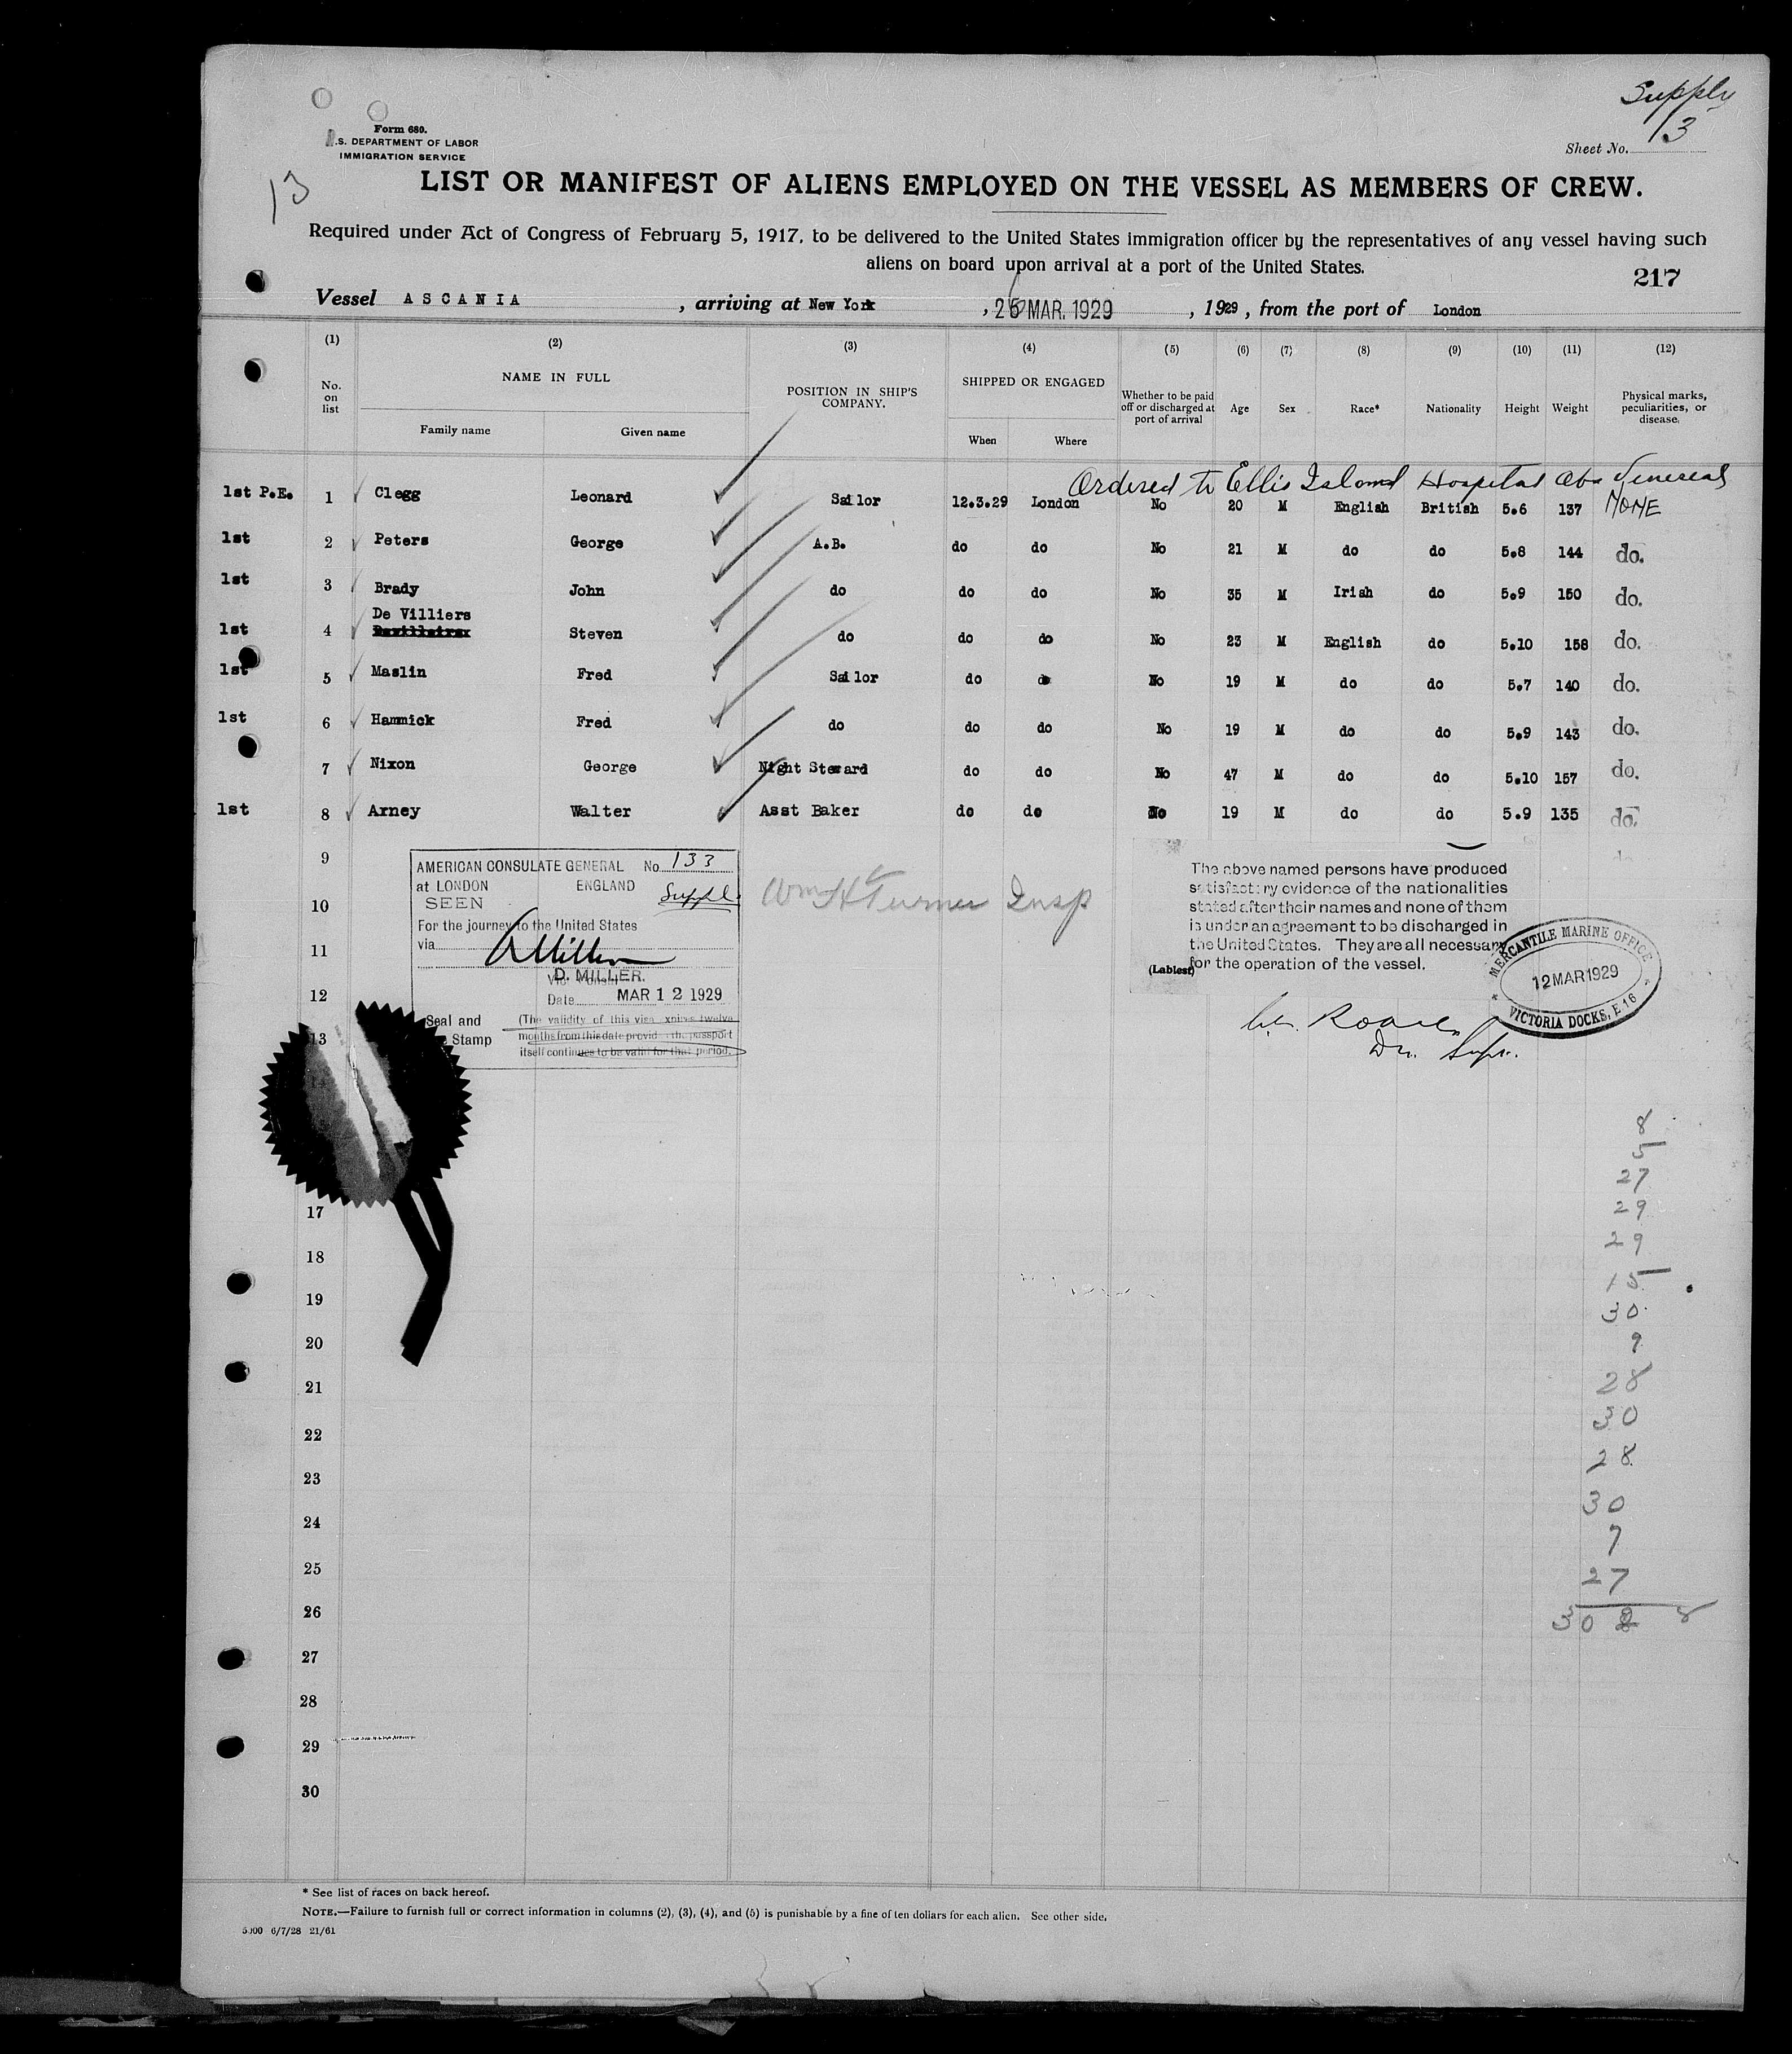 Supply
13
Form 680.
.S. DEPARTMENT OF LABOR
IMMIGRATION SERVICE
Sheet No.
13
LIST OR MANIFEST OF ALIENS EMPLOYED ON THE VESSEL AS MEMBERS OF CREW.
Required under Act of Congress of February 5, 1917, to be delivered to the United States immigration officer by the representatives of any vessel having such
aliens on board upon arrival at a port of the United States.
217
Vessel ASCANIA, arriving at New York, 26 MAR. 1929, 1929, from the port of London
(1) (2) (3) (4) (5) (6) (7) (8) (9) (10) (11) (12)
No. on list NAME IN FULL POSITION IN SHIP'S COMPANY. SHIPPED OR ENGAGED Whether to be paid off or discharged at port of arrival Age Sex Race* Nationality Height Weight Physical marks, peculiarities, or disease.
Family name Given name When Where
Ordered to Ellis Island Hospital Venereal
1st P.E. 1 Clegg Leonard Sailor 12.3.29 London No 20 M English British 5.6 137 NONE
1st 2 Peters George A.B. do do No 21 M do do 5.8 144 do.
1st 3 Brady John do do do No 35 M Irish do 5.9 150 do.
De Villiers
1st 4 Steven do do do No 23 M English do 5.10 158 do.
1st 5 Maslin Fred Sailor do do No 19 M do do 5.7 140 do.
1st 6 Hammick Fred do do do No 19 M do do 5.9 143 do.
7 Nixon George Night Steward do do No 47 M do do 5.10 157 do.
1st 8 Arney Walter Asst Baker do do No 19 M do do 5.9 135 do.
9
10
11
12
13
AMERICAN CONSULATE GENERAL No. 133
at LONDON ENGLAND Suppl.
SEEN
For the journey to the United States
via
D. MILLER.
Vice Consul
Date MAR 12 1929
Seal and (The validity of this visa expires twelve
Stamp months from this date provided the passport
itself continues to be valid for that period.
Wm H Turner Insp
The above named persons have produced
satisfactory evidence of the nationalities
stated after their names and none of them
is under an agreement to be discharged in
the United States. They are all necessary
(Lables) for the operation of the vessel.
MERCANTILE MARINE OFFICE
12 MAR 1929
VICTORIA DOCKS, E 16
17
18
19
20
21
22
23
24
25
26
27
28
29
30
8
5
27
29
29
15
30
9
28
30
28
30
7
27
30 8
* See list of races on back hereof.
NOTE.—Failure to furnish full or correct information in columns (2), (3), (4), and (5) is punishable by a fine of ten dollars for each alien. See other side.
5000 6/7/28 21/61